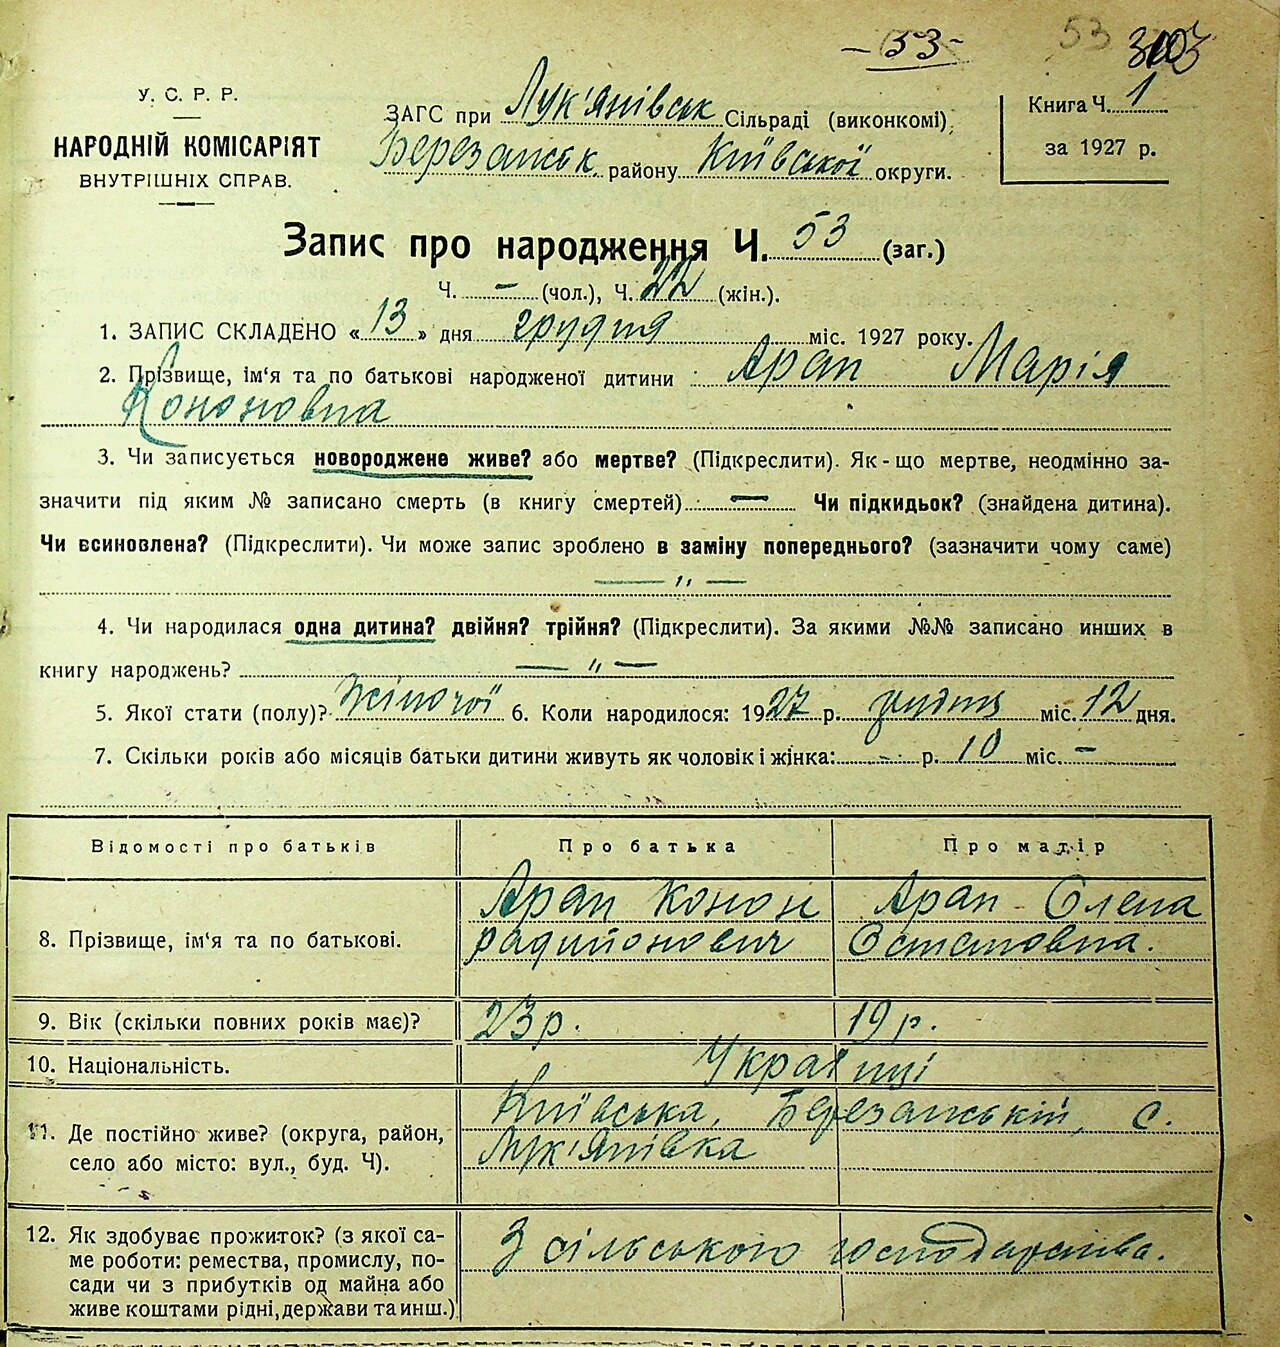 - 53 -
53
У. С. Р. Р.
НАРОДНІЙ КОМІСАРІЯТ
ВНУТРІШНІХ СПРАВ.
ЗАГС при Лук'янівськ Сільраді (виконкомі),
Березанськ. району Київської округи.
Книга Ч. 1
за 1927 р.
Запис про народження Ч. 53 (заг.)
Ч. - (чол.), Ч. 22 (жін.).
1. ЗАПИС СКЛАДЕНО «13» дня грудня міс. 1927 року.
2. Прізвище, ім'я та по батькові народженої дитини: Арап Марія
Кононовна
3. Чи записується новороджене живе? або мертве? (Підкреслити). Як-що мертве, неодмінно за-
значити під яким № записано смерть (в книгу смертей) — Чи підкидьок? (знайдена дитина).
Чи всиновлена? (Підкреслити). Чи може запис зроблено в заміну попереднього? (зазначити чому саме)
— " —
4. Чи народилася одна дитина? двійня? трійня? (Підкреслити). За якими №№ записано инших в
книгу народжень? — " —
5. Якої стати (полу)? Жіночої 6. Коли народилося: 1927 р. грудня міс. 12 дня.
7. Скільки років або місяців батьки дитини живуть як чоловік і жінка: - р. 10 міс. -
Відомості про батьків Про батька Про матір
8. Прізвище, ім'я та по батькові. Арап Конон Арап Олена
Радийонович Остаповна.
9. Вік (скільки повних років має)? 23 р. 19 р.
10. Національність. Українці
11. Де постійно живе? (округа, район, Київська, Березанській, с.
село або місто: вул., буд. Ч). Лук'янівка
12. Як здобуває прожиток? (з якої са- З сільського господарства.
ме роботи: ремества, промислу, по-
сади чи з прибутків од майна або
живе коштами рідні, держави та инш.)